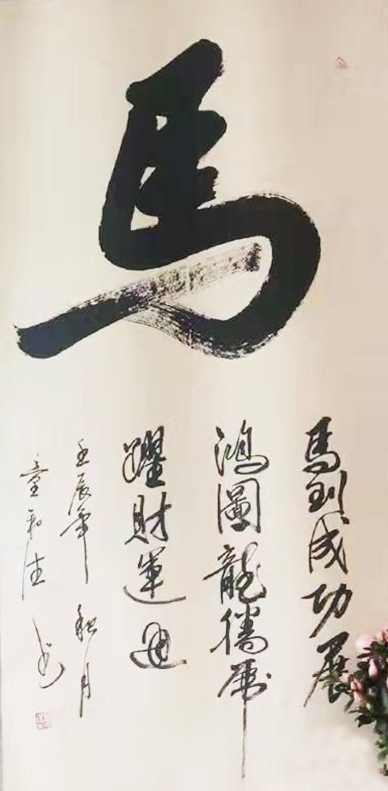 馬
馬到成功展
鴻圖龍騰虎
躍財運通
壬辰年 秋月
童和法 书